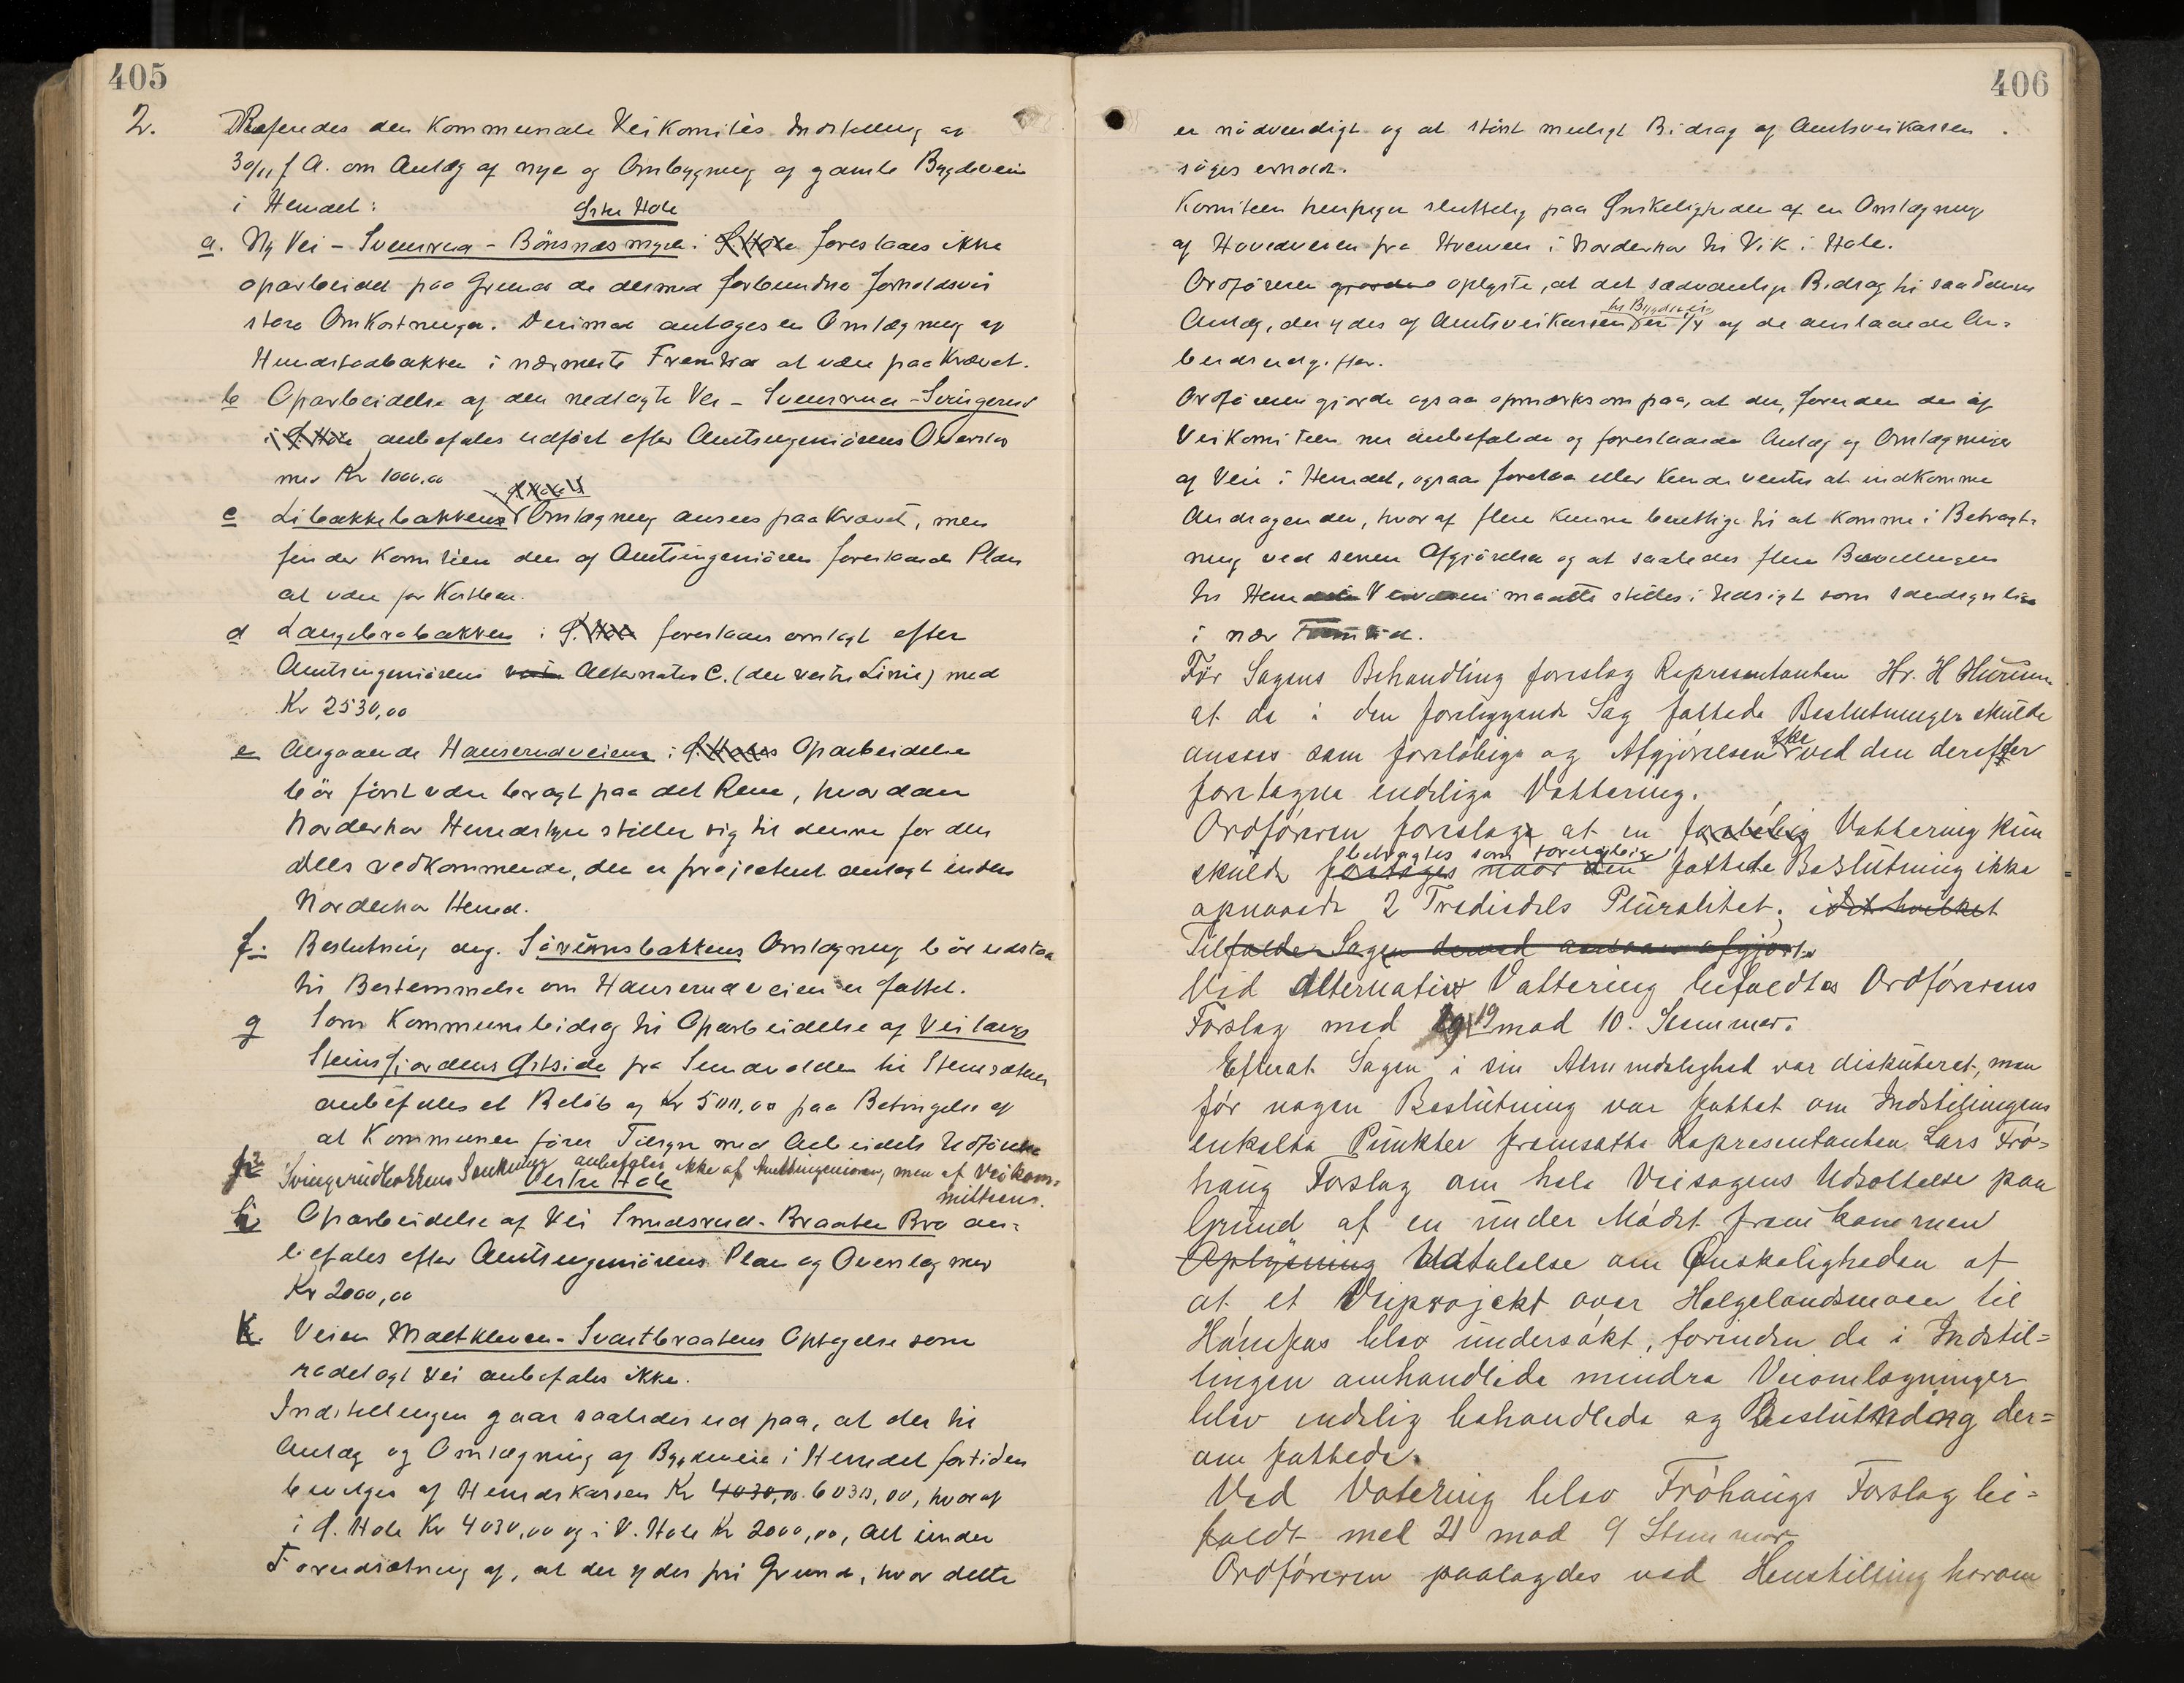 405
2. Refereredes den kommunale Veikomités Indstilling av
30/11 f A. om Anlæg af nye og Ombygning af gamle Bygdeveie
i Herredet:
Østre Hole
a. Ny Vei - Svensrud - Bönsnæsmyra i Ø. Hole foreslaaes ikke
oparbeidet paa Grund de dermed forbundne forholdsvis
store Omkostninger. Derimod antages en Omlægning af
Hundstadbakken i nærmeste Fremtid at være paakrævet.
b Oparbeidelse af den nedlagte Vei - Svensrud - Svingerud
i Ø. Hole anbefales udført efter Amtsingeniörens Overslag
med Kr 1000,00
c Libakkebakkens Ø. Hole Omlægning ansees paakrævet, men
finder Komitéen den af Amtsingeniören foreslaaede Plan
at være for kostbar.
d Langebrobakken i Ø. Hole foreslaaes omlagt efter
Amtsingeniörens Alternativ C. (den vestre Linie) med
Kr 2530,00
e Angaaende Hanserudveiens i Ø. Holes Oparbeidelse
bör först være bragt paa det Rene, hvordan
Norderhov Herredstyre stiller sig til denne for den
Dels vedkommende, der er projectert anlagt inden
Norderhov Herred.
f. Beslutning ang. Sörumsbakkens Omlægning bör udstaa
til Bestemmelse om Hanserudveien er fattet.
g Som Kommunebidrag til Oparbeidelse af Vei langs
Steinsfjordens Østside fra Sundvolden til Stensætra
anbefales et Belöb og Kr 500,00 paa Betingelse af
at Kommunen förer Tilsyn med Arbeidets Udförelse
Svingerudbakkens Senkning anbefales ikke af Amtsingeniören, men af Veikom-
mitteens.
Vestre Hole
h Oparbeidelse af Vei Smedsrud - Braaten Bro an-
befales efter Amtsingeniörens Plan og Overslag med
Kr 2000,00
K. Veien Mælkleven - Svartbraatens Optagelse som
nedelagt Vei anbefales ikke.
Indstillingen gaar saaledes ud paa, at der til
Anlæg og Omlægning af Bygdeveie i Herredet fortiden
bevilges af Herredskassen Kr 4030,00 6030,00, hvoraf
i Ø. Hole Kr 4030,00 og i V. Hole Kr 2000,00, alt under
Forudsætning af, at der ydes fri Grund, hvor dette
406
er nödvendigt og at störst muligt Bidrag af Amtsveikassen
söges erholdt.
Komiteen henpeger sluttelig paa Ønskeligheden af en Omlægning
af Hovedveien fra Hvervven i Norderhov til Vik i Hole.
Ordföreren gjorde oplyste, at det sædvanlige Bidrag til saadanne
Anlæg, der ydes af Amtsveikassen til Bygdeveie er 1/4 af de anslaaede Ar-
beidsudgifter.
Ordföreren gjorde ogsaa opmærksom paa, at der, foruden de af
Veikomiteen nu anbefalede og foreslaaede Anlæg og Omlægninger
af Veie i Herredet, ogsaa forelaa eller kunde ventes at indkomme
Andragender, hvoraf flere kunne berettige til at komme i Betragt-
ning ved senere Afgjörelse og at saaledes flere Bevillinger
til Herredets Veivæsen maatte stilles i Udsigt som sandsynlige
i nær Fremtid.
Før Sagens Behandling foreslog Representanten Hr. H Hurum
at de i den foreliggende Sag fattede Beslutninger skulde
ansees som forelöbige og Afgjörelsen ske ved den derefter
foretagne endelige Vottering.
Ordföreren foreslog at en forelöbig Vottering kun
skulde foretages betragtes som forelöbig naar den fattede Beslutning ikke
opnaaede 2 Trediedels Pluralitet; i det hvilket
Tilfælde Sagen derved ansees afgjort.
Ved Alternativ Vottering bifaldtes Ordförerens
Forslag med 19 mod 10. Stemmer.
Efterat Sagen i sin Almindelighed var diskuteret, men
før nogen Beslutning var fattet om Indstillingens
enkelte Punkter fremsatte Representanten Lars Frö-
haug Forslag om hele Veisagens Udsættelse paa
Grund af en under Mödet fremkommen
Oplysning Udtalelse om Ønskeligheden af
at et Veiprojekt over Helgelandsmoen til
Hönefos blev undersökt, forinden de i Indstil-
lingen omhandlede mindre Veiomlægninger
blev endelig behandlede og Beslutning der-
om fattede.
Ved Votering blev Fröhaugs Forslag bi-
faldt med 21 mod 9 Stemmer
Ordföreren paalagdes ved Henstilling herom